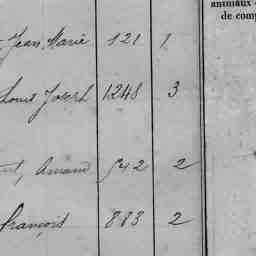 animaux
de comp
Jean Marie 121 1
Louis Joseph 1248 3
Armand 542 2
François 883 2